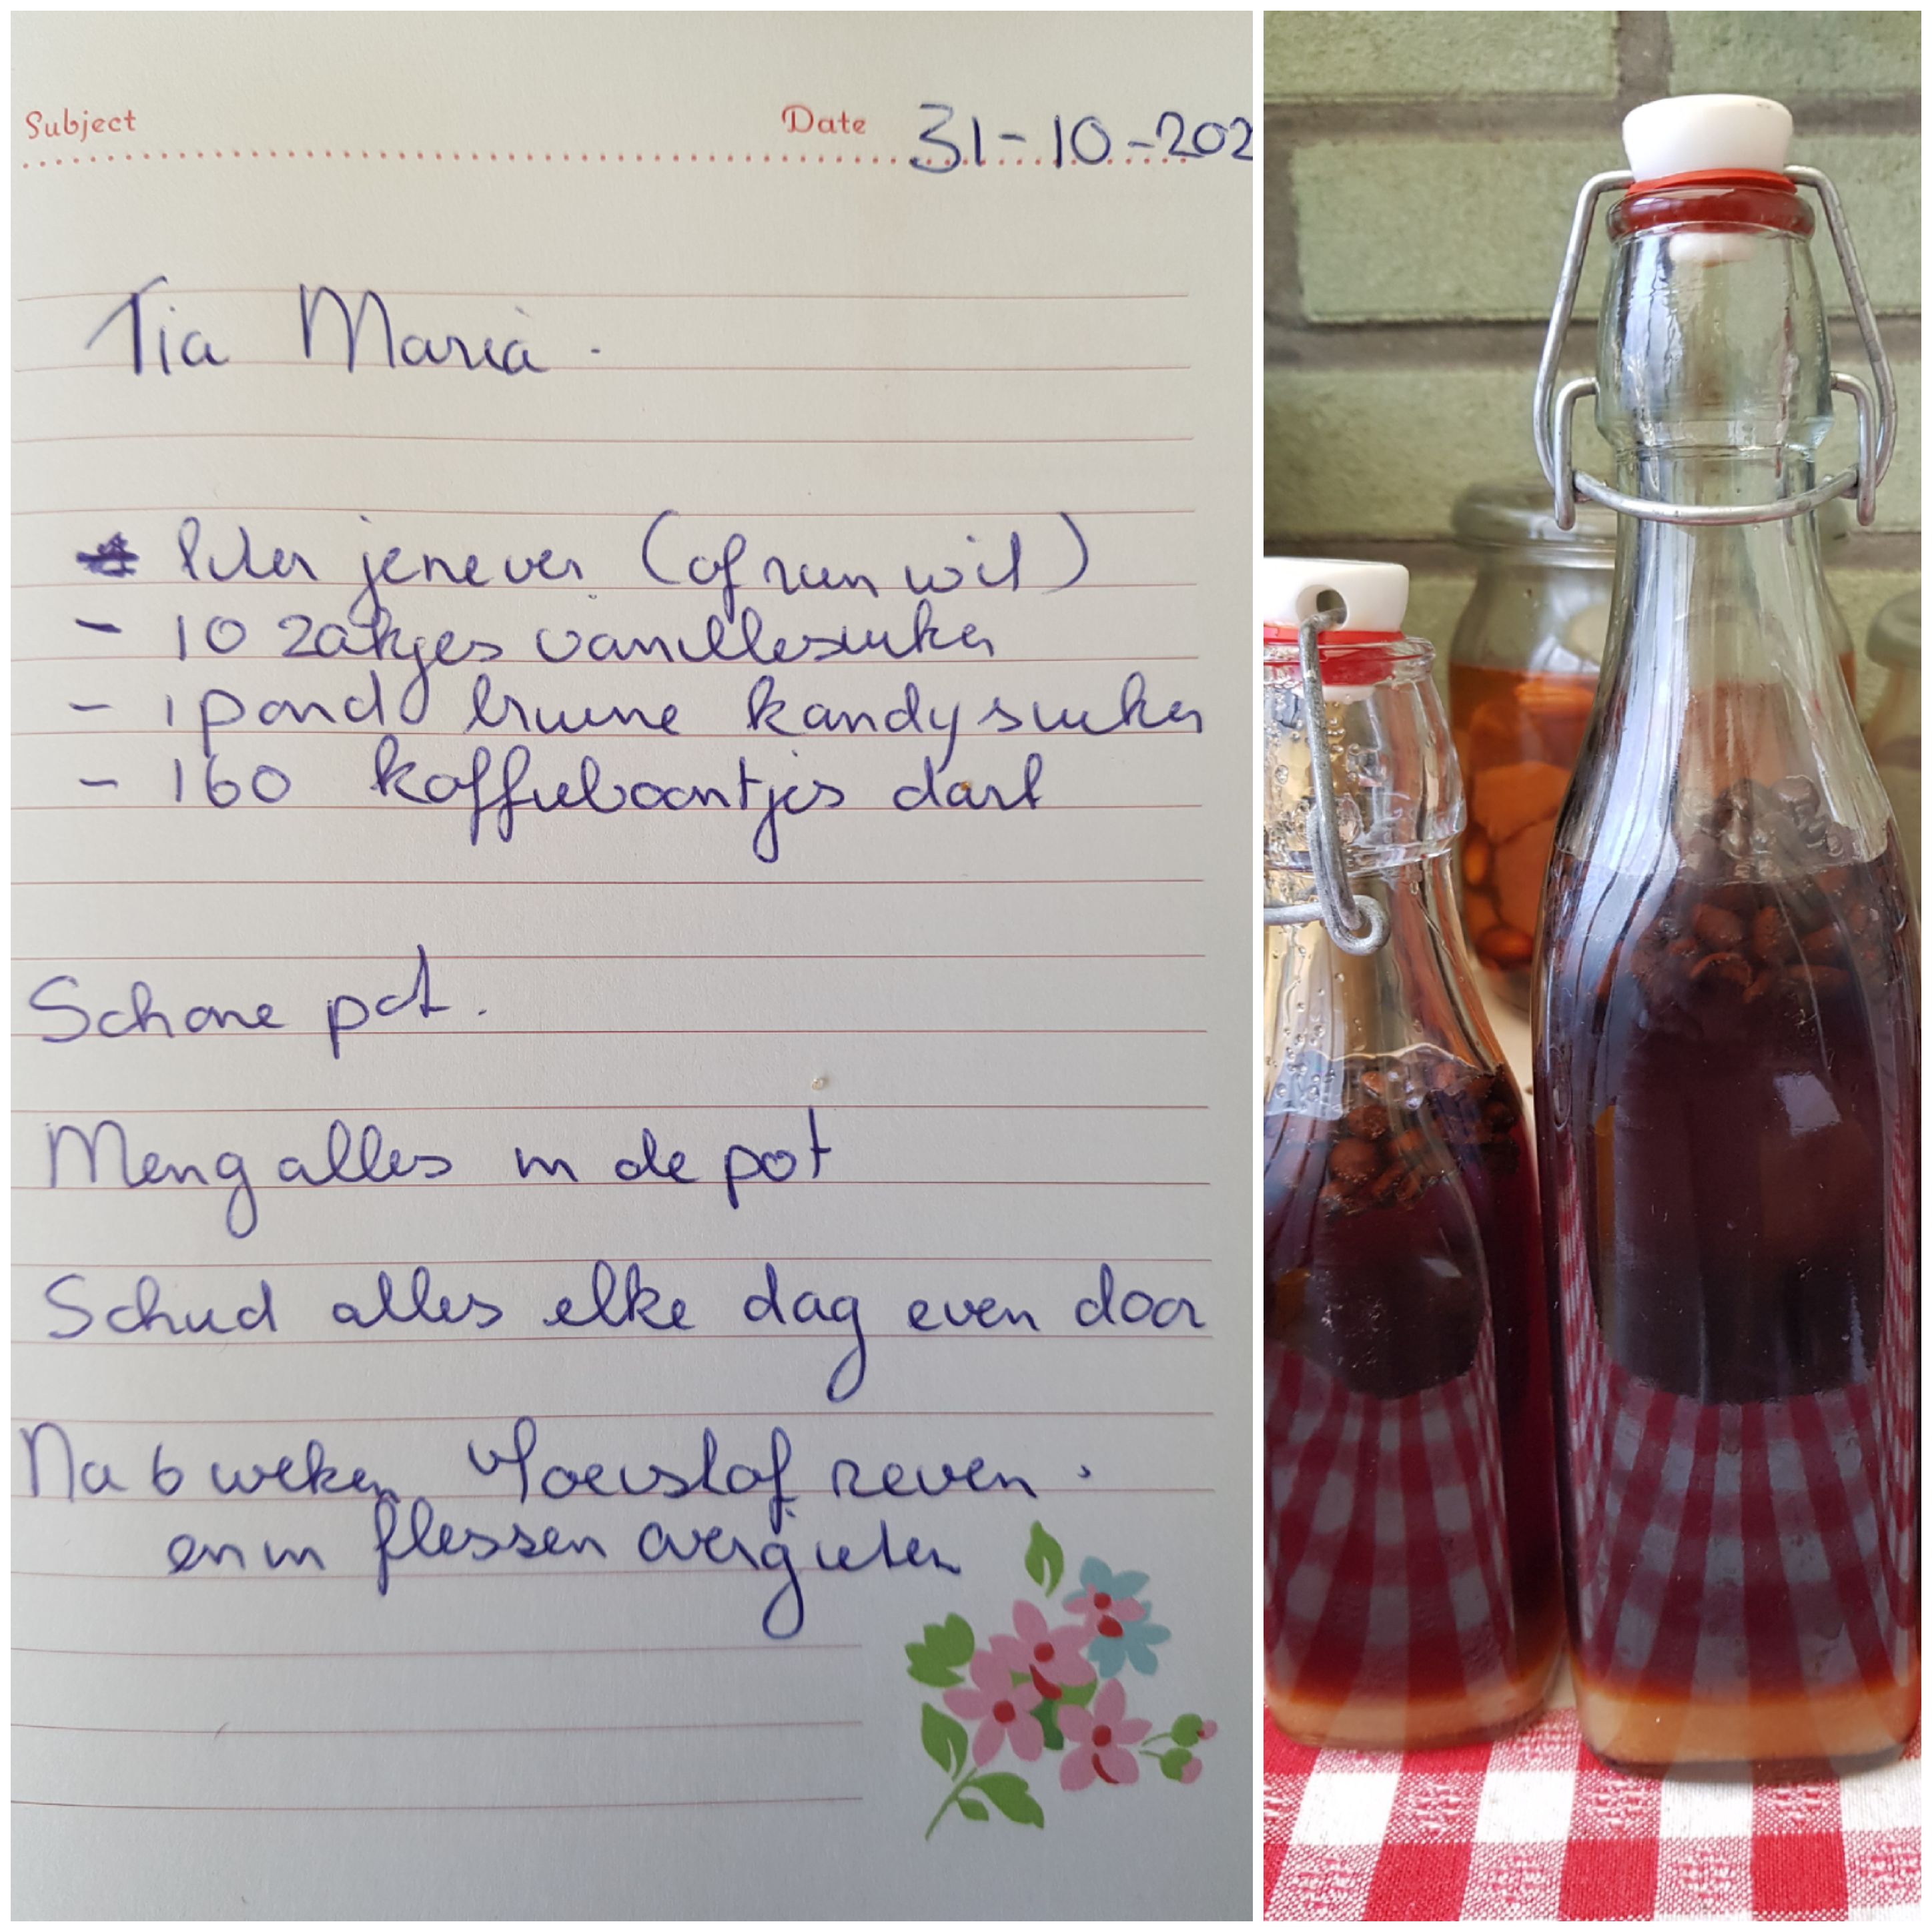 Subject
Date 31-10-202
Tia Maria.
liter jenever (of rum wit)
- 10 zakjes vanillesuiker
- 1 pond bruine kandysuiker
- 160 koffieboontjes dark
Schone pot.
Meng alles in de pot
Schud alles elke dag even door
Na 6 weken vloeistof zeven.
en in flessen overgieten